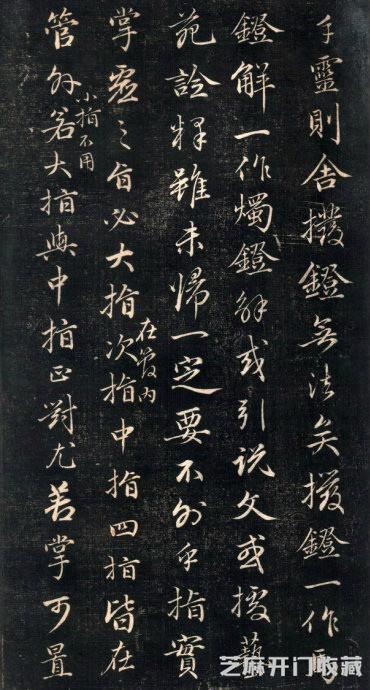 手靈則舍撥鐙無法矣撥鐙一作馬
鐙解一作燭鐙解或引說文或援藝
苑詮釋雖未歸一定要不外乎指實
掌虛之旨必大指次指中指四指皆在
在管内
管外若大指與中指正對尤善掌可置
小指不用
芝麻开门收藏